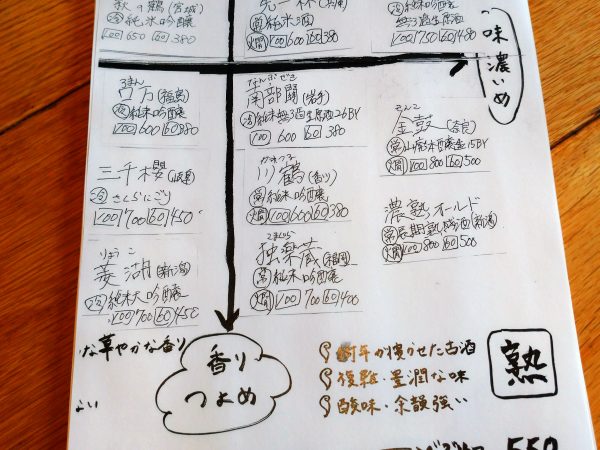 萩の鶴(宮城)
冷 純米吟醸
100 650 60 380
純米酒
燗 100 600 60 380
無ろ過生原酒
100 750 60 480
味濃いめ
ろまん
ロ万(福島)
冷 純米吟醸
100 600 60 380
なんぶぜき
南部関(岩手)
冷 純米無ろ過生原酒26BY
100 600 60 380
きんこ
金鼓(奈良)
15BY
燗 100 800 60 500
三千櫻(岐阜)
冷 さくらにごり
100 700 60 450
かわつる
川鶴(香川)
常 純米吟醸
燗 100 600 60 380
濃熟オールド
常 長期熟成酒(新潟)
燗 100 800 60 500
りょうこ
菱湖(新潟)
冷 純米大吟醸
100 700 60 450
こまぐら
独楽蔵(福岡)
常 純米吟醸
燗 100 700 60 400
な華やかな香り
よい
香り
つよめ
数年か寝かせた古酒
複雑・豊潤な味
酸味・余韻強い
熟
550